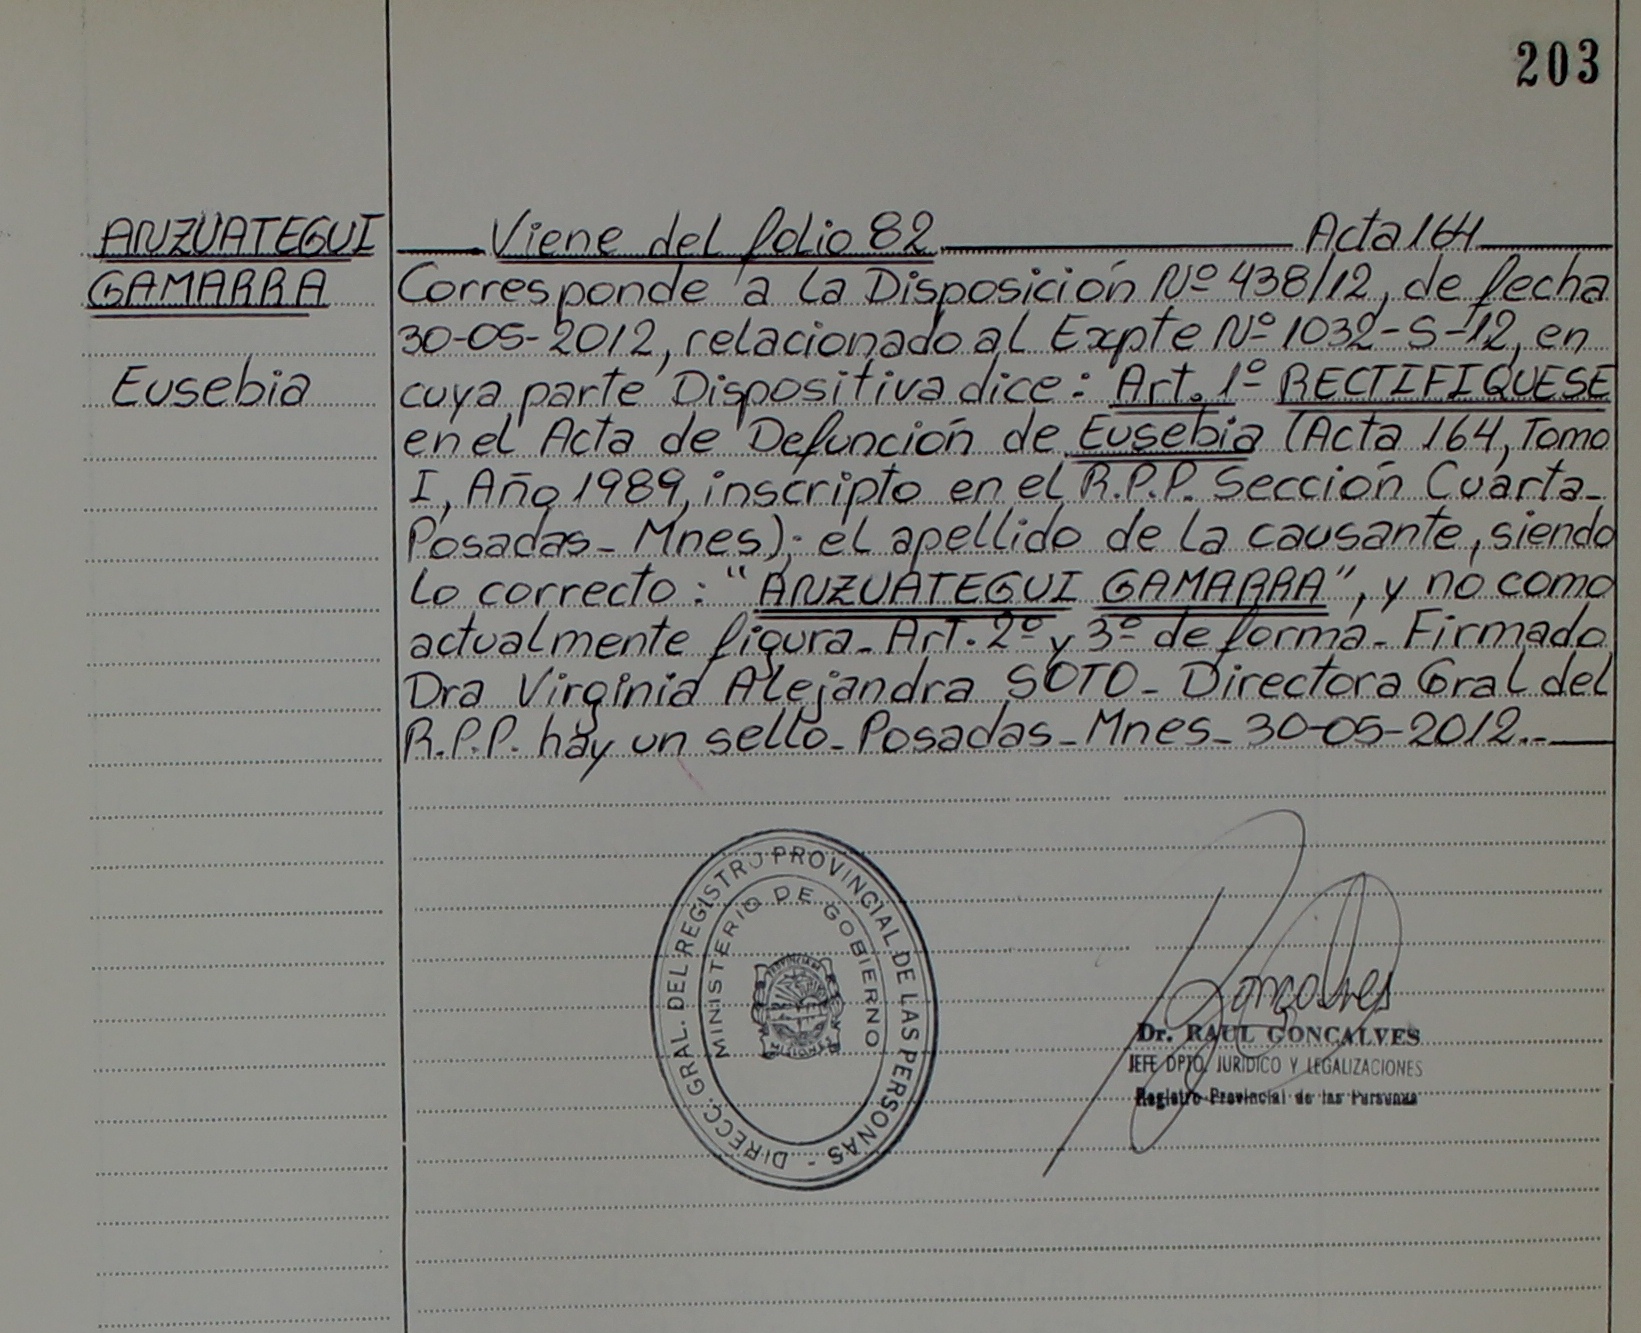 203
ANZUATEGUI
GAMARRA
Eusebia
Viene del folio 82 Acta 164
Corresponde a la Disposición Nº 438/12, de fecha
30-05-2012, relacionado al Expte Nº 1032-S-12, en
cuya parte Dispositiva dice: Art. 1º RECTIFIQUESE
en el Acta de Defunción de Eusebia (Acta 164, Tomo
I, Año 1989, inscripto en el R.P.P. Sección Cuarta-
Posadas- Mnes); el apellido de la causante, siendo
lo correcto: "ANZUATEGUI GAMARRA", y no como
actualmente figura- Art. 2º y 3º de forma- Firmado
Dra Virginia Alejandra SOTO- Directora Gral del
R.P.P. hay un sello- Posadas- Mnes- 30-05-2012.-
DIRECC. GRAL. DEL REGISTRO PROVINCIAL DE LAS PERSONAS -
MINISTERIO DE GOBIERNO
PROVINCIA DE
MISIONES
Gonçalves
Dr. RAUL GONÇALVES
JEFE DPTO. JURIDICO Y LEGALIZACIONES
Registro Provincial de las Personas